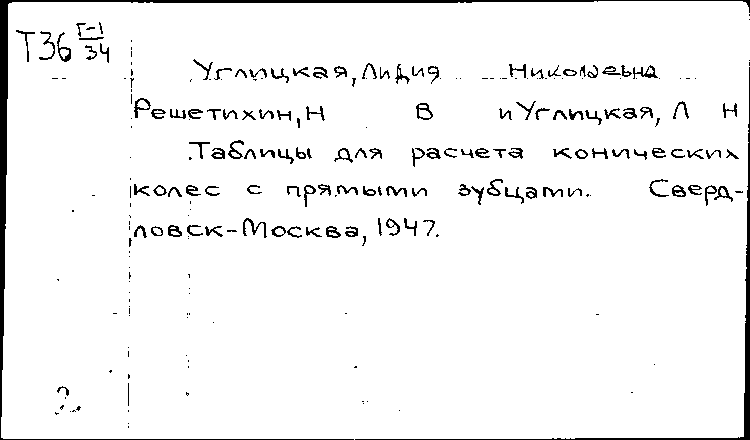 Т36 Г-1/34
Углицкая, Лидия Николаевна
Решетихин, Н В и Углицкая, Л Н
Таблицы для расчета конических
колес с прямыми зубцами. Сверд-
ловск-Москва, 1947.
2